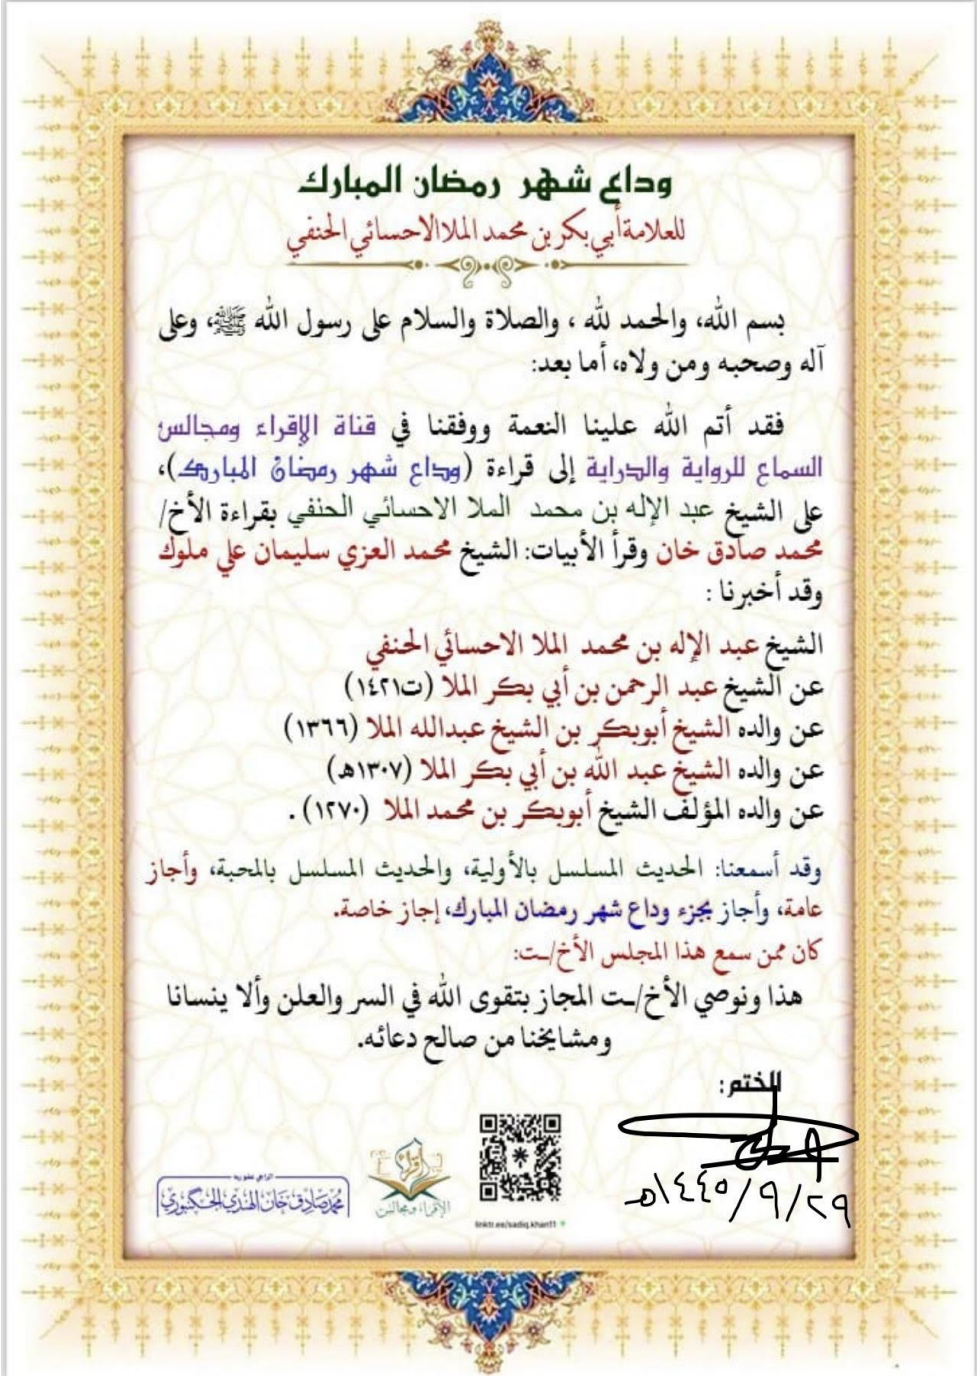 وداع شهر رمضان المبارك
للعلامة أبي بكر بن محمد الملا الاحسائي الحنفي
بسم الله، والحمد لله ، والصلاة والسلام على رسول الله ﷺ، وعلى
آله وصحبه ومن ولاه، أما بعد:
فقد أتم الله علينا النعمة ووفقنا في قناة الإقراء ومجالس
السماع للرواية والدراية إلى قراءة (وداع شهر رمضان المبارك)،
على الشيخ عبد الإله بن محمد الملا الاحسائي الحنفي بقراءة الأخ/
محمد صادق خان وقرأ الأبيات: الشيخ محمد العزي سليمان علي ملوك
وقد أخبرنا :
الشيخ عبد الإله بن محمد الملا الاحسائي الحنفي
عن الشيخ عبد الرحمن بن أبي بكر الملا (ت١٤٢١)
عن والده الشيخ أبوبكر بن الشيخ عبدالله الملا (١٣٦٦)
عن والده الشيخ عبد الله بن أبي بكر الملا (١٣٠٧هـ)
عن والده المؤلف الشيخ أبوبكر بن محمد الملا (١٢٧٠) .
وقد أسمعنا: الحديث المسلسل بالأولية، والحديث المسلسل بالمحبة، وأجاز
عامة، وأجاز بجزء وداع شهر رمضان المبارك، إجاز خاصة.
كان ممن سمع هذا المجلس الأخ/ـت:
هذا ونوصي الأخ/ـت المجاز بتقوى الله في السر والعلن وألا ينسانا
ومشايخنا من صالح دعائه.
الختم:
٢٩/٩/١٤٤٥هـ
الراجي عفو ربه
محمد صادق خان الهندي الجكنبوري
الإقراء ومجالس
linktr.ee/sadiq.khan11